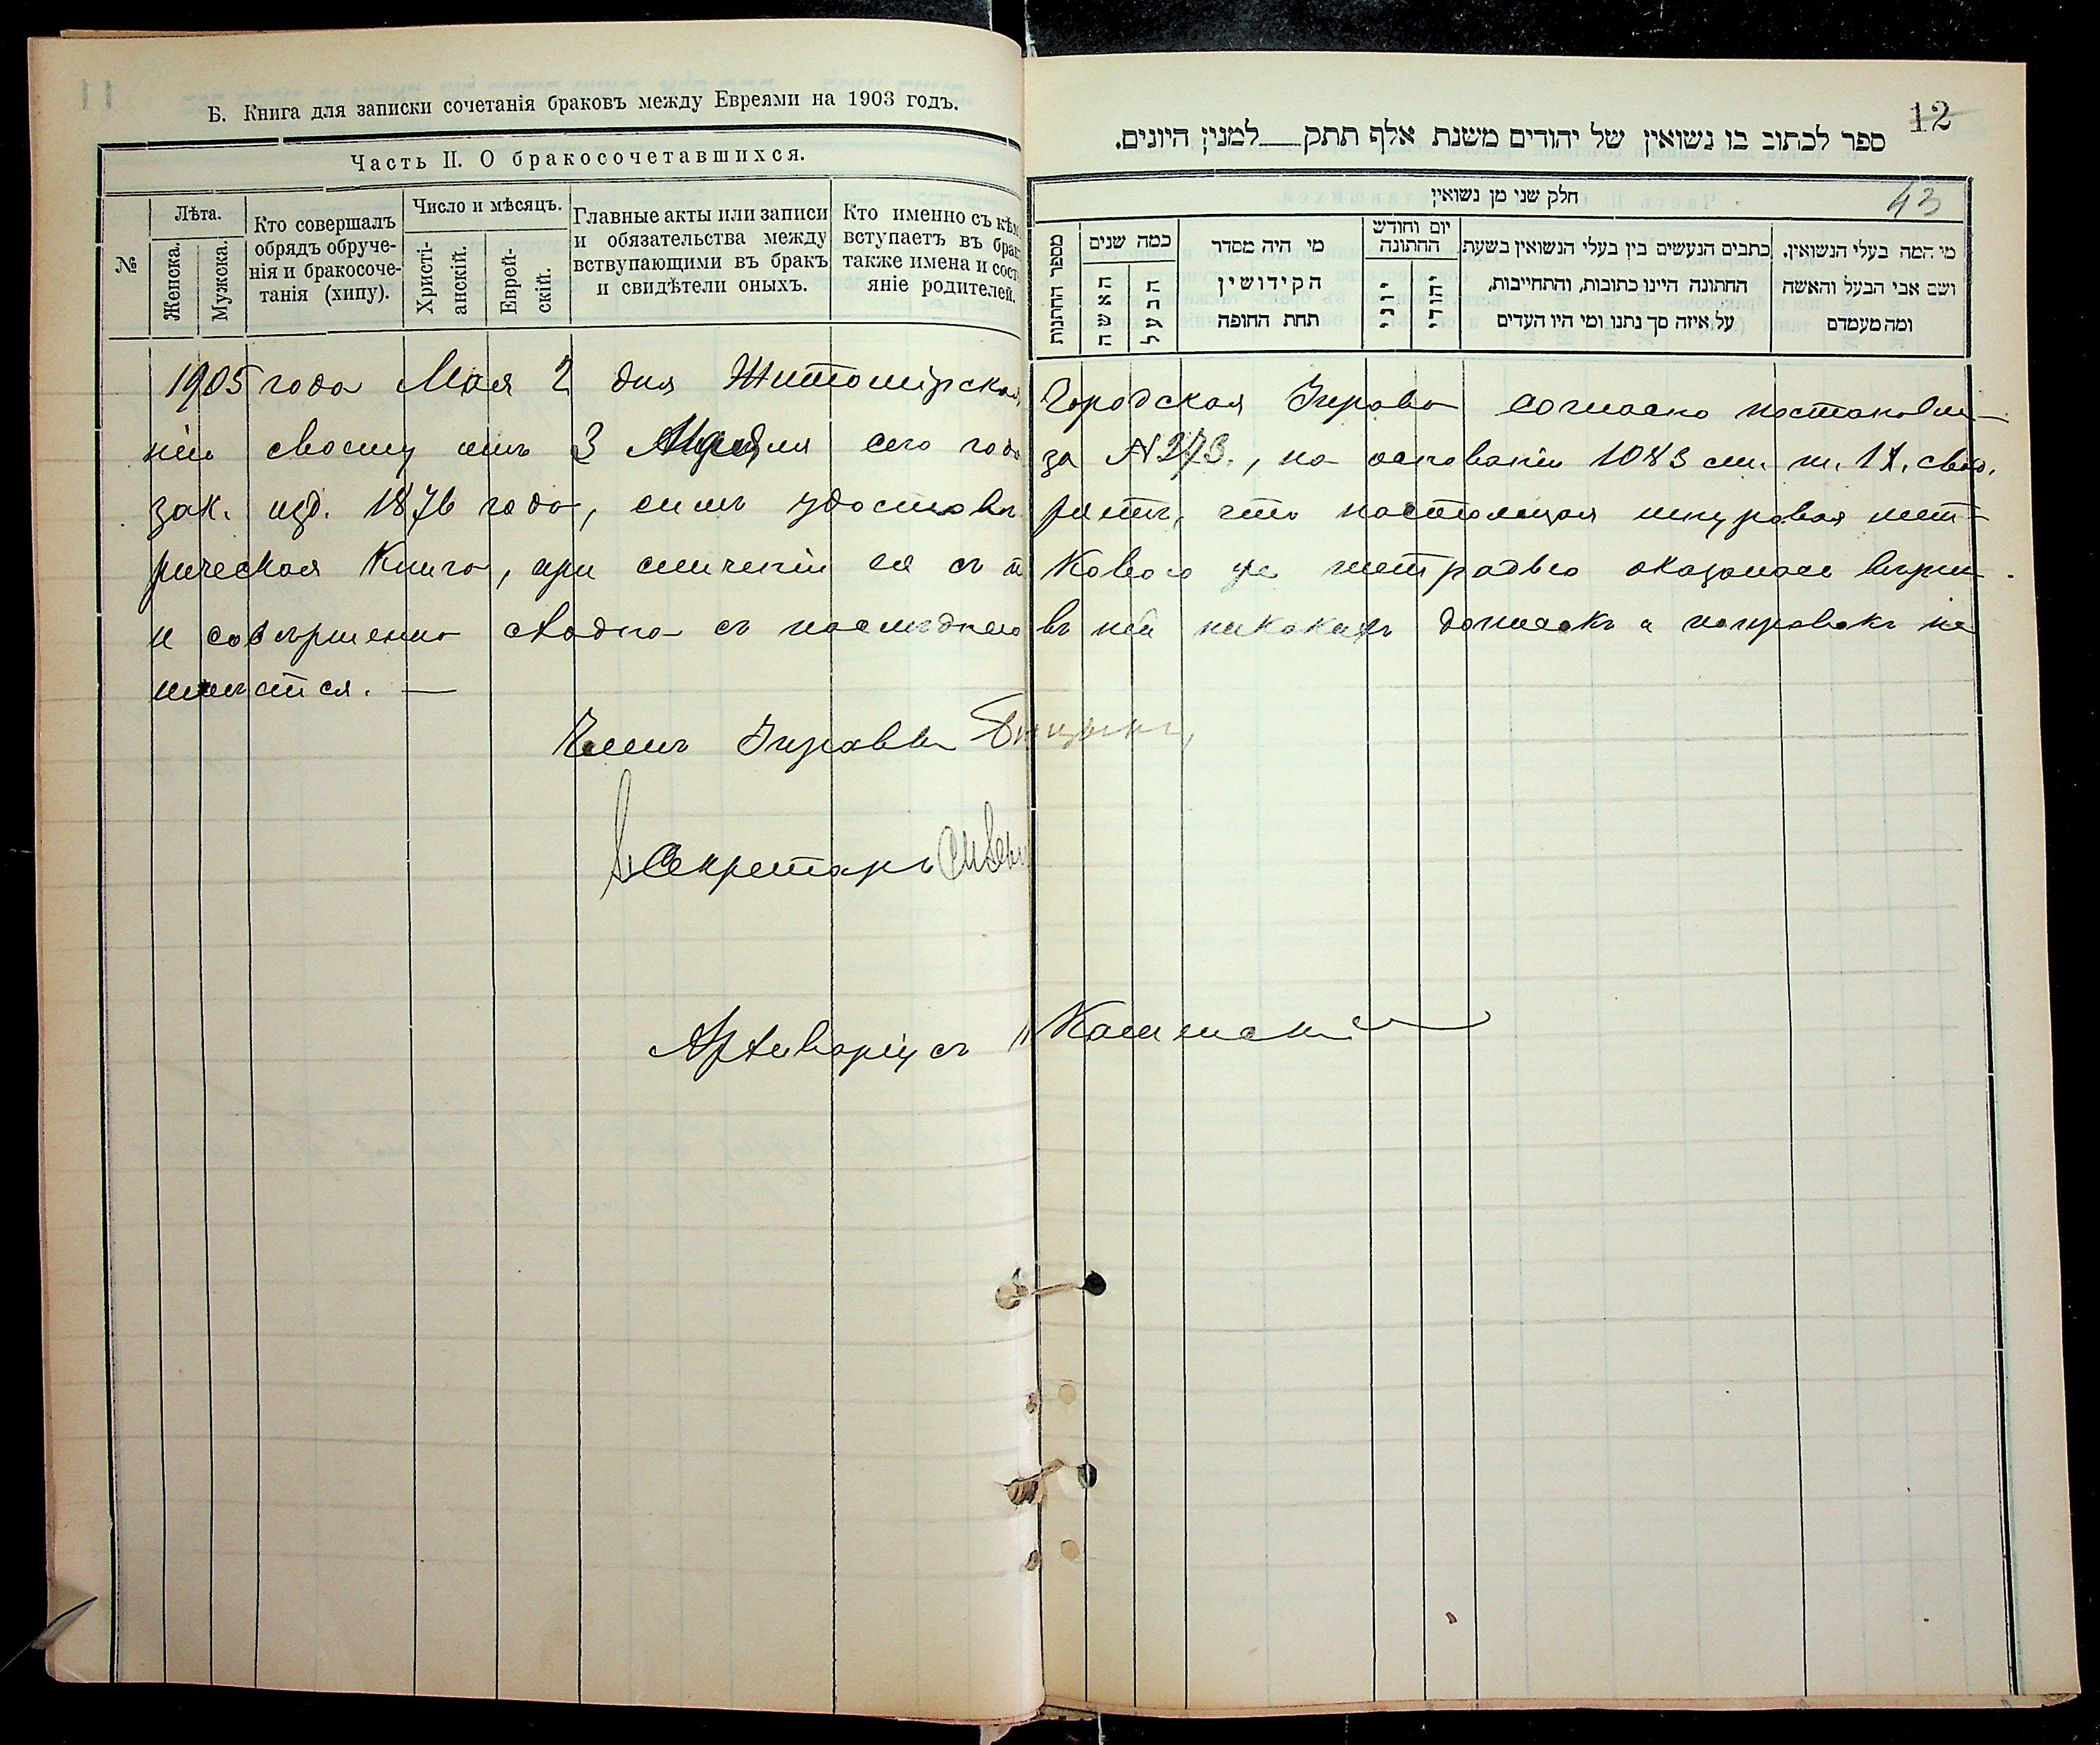 Б. Книга для записки сочетанія браковъ между Евреями на 1903 годъ.
Часть II. О бракосочетавшихся.
№
Лѣта.
Женска.
Мужска.
Кто совершалъ
обрядъ обруче-
нія и бракосоче-
танія (хипу).
Число и мѣсяцъ.
Христі-
анскій.
Еврей-
скій.
Главные акты или записи
и обязательства между
вствупающими въ бракъ
и свидѣтели оныхъ.
Кто именно съ кѣм
вступаетъ въ брак
также имена и сост
яніе родителей.
12
ספר לכתוב בו נשואין של יהודים משנת אלף תתק——למנין היונים.
43
חלק שני מן נשואין
מספר החתנות
כמה שנים
האשה
הבעל
מי היה מסדר
הקידושין
תחת החופה
יום וחודש
החתונה
יוני
יהודי
כתבים הנעשים בין בעלי הנשואין בשעת
החתונה היינו כתובות, והתחייבות,
על איזה סך נתנו ומי היו העדים
מי המה בעלי הנשואין.
ושם אבי הבעל והאשה
ומה מעמדם
1905 года Мая 2 дня Житомірская Городская Управа согласно постановле-
нію своему отъ 3 Апреля сего года за № 273, на основаніи 1083 ст. т. IX. свод.
зак. изд. 1876 года, симъ удостовѣряетъ, что настоящая шнуровая мет-
рическая Книга, при сличеніи ея съ таковою же тетрадью оказалась вѣрна
и совершенно сходна съ послѣднею въ ней никакихъ дописокъ и поправокъ не
имѣется. —
Членъ Управы
Секретарь
Архиваріусъ